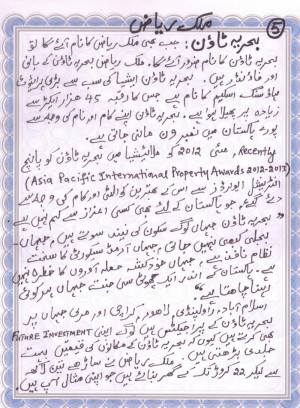 ملک ریاض
⑤
بحریہ ٹاؤن: جب بھی ملک ریاض کا نام آئے گا تو
بحریہ ٹاؤن کا نام ضرور آئے گا۔ ملک ریاض بحریہ ٹاؤن کے بانی
اور فاؤنڈر ہیں۔ بحریہ ٹاؤن ایشیا کی سب سے بڑی پرائیویٹ
ہاؤسنگ اسکیم کا نام ہے جس کا رقبہ 45 ہزار ایکڑ سے
زیادہ پر پھیلا ہوا ہے۔ بحریہ ٹاؤن اپنے کام اور نام کی وجہ سے
پورے پاکستان میں نمبر ون مانی جاتی ہے۔
Recently, مئی 2012 کو ملائیشیا میں بحریہ ٹاؤن کو پانچ
(Asia Pacific International Property Awards 2012-2013)
انٹرنیشنل ایوارڈز سے اس کے بہترین کوالٹی اور کام کی وجہ سے
دیے گئے۔ جو پاکستان کے لئے بھی کسی اعزاز سے کم نہیں ہے۔
"بحریہ ٹاؤن جہاں لوگ سکون کی نیند سوتے ہیں، جہاں
بجلی کبھی نہیں جاتی، جہاں آدمی سکیورٹی کا سخت
نظام نافذ ہے، جہاں خودکش حملہ آوروں کا خطرہ نہیں
ہے۔ پاکستان کے اندر ایک چھوٹی سی جنت جہاں ہر کوئی
رہنا چاہتا ہے"
اسلام آباد، راولپنڈی، لاہور، کراچی اور مری جہاں پر
بحریہ ٹاؤن کے پراجیکٹس ہیں لوگ اپنی FUTURE INVESTMENT
بھی کرتے ہیں کیوں کہ بحریہ ٹاؤن کے مکانوں کی قیمتیں بہت
جلدی بڑھتی ہیں۔ ملک ریاض نے ساڑھے تین لاکھ
سے لیکر 22 کروڑ تک کے گھر بنائے ہیں جو اپنی مثال آپ ہیں۔